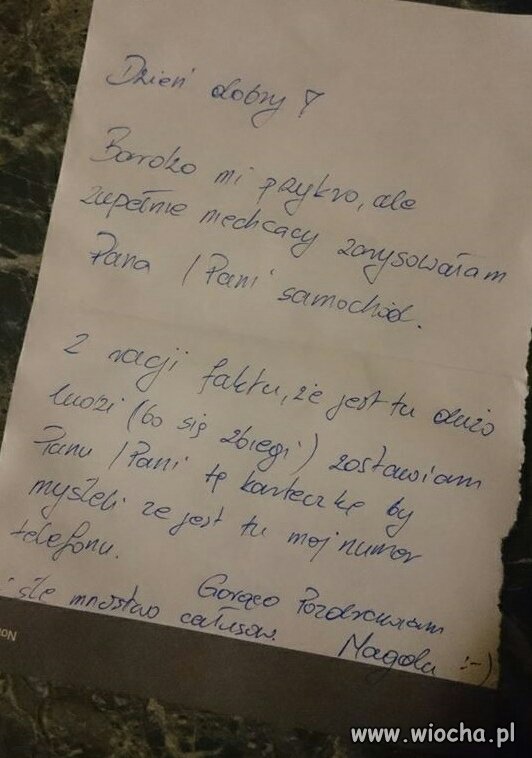 Dzień dobry!
Bardzo mi przykro, ale
zupełnie niechcący zarysowałam
Pana / Pani samochód.
Z racji faktu, że jest tu dużo
ludzi (bo się zbiegli) zostawiam
Panu / Pani tę karteczkę by
myśleli że jest tu mój numer
telefonu.
Gorąco Pozdrawiam
i ślę mnóstwo całusów.
Magda :-)
www.wiocha.pl